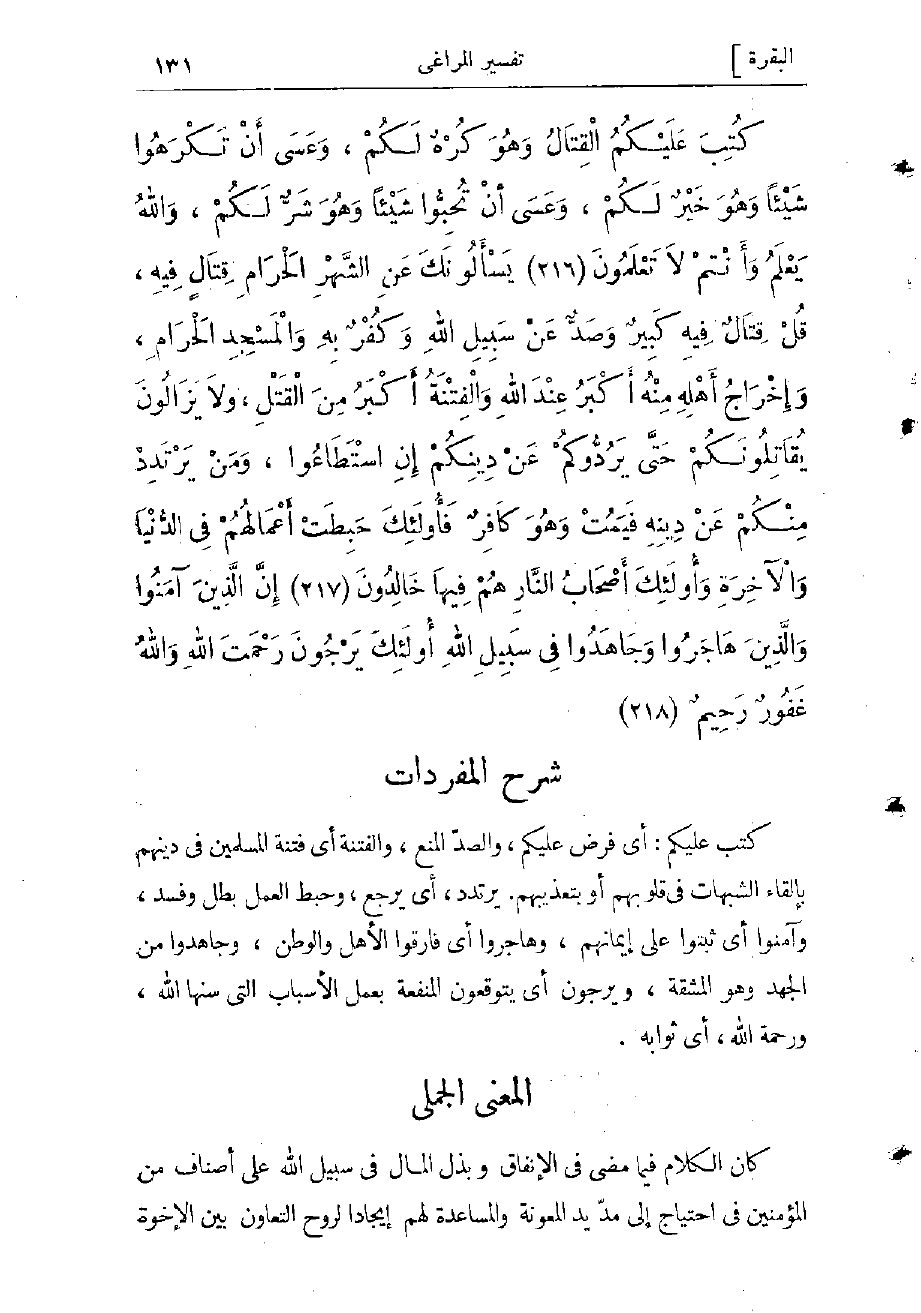 البقرة ] تفسير المراغى ١٣١
كُتِبَ عَلَيْكُمُ الْقِتَالُ وَهُوَ كُرْهٌ لَكُمْ ، وَعَسَى أَنْ تَكْرَهُوا
شَيْئاً وَهُوَ خَيْرٌ لَكُمْ ، وَعَسَى أَنْ تُحِبُّوا شَيْئاً وَهُوَ شَرٌّ لَكُمْ ، وَاللهُ
يَعْلَمُ وَأَنْتمْ لاَ تَعْلَمُونَ (٢١٦) يَسْأَلُونَكَ عَنِ الشَّهْرِ الْحَرَامِ قِتَالٍ فِيهِ ،
قُلْ قِتَالٌ فِيهِ كَبِيرٌ وَصَدٌّ عَنْ سَبِيلِ اللهِ وَكُفْرٌ بِهِ وَالْمَسْجِدِ الْحَرَامِ ،
وَإِخْرَاجُ أَهْلِهِ مِنْهُ أَكْبَرُ عِنْدَ اللهِ وَالْفِتْنَةُ أَكْبَرُ مِنَ الْقَتْلِ ، ولاَ يَزَالُونَ
يُقَاتِلُونَكُمْ حَتَّى يَرُدُّوكُمْ عَنْ دِينِكُمْ إِنِ اسْتَطَاعُوا ، وَمَنْ يَرْتَدِدْ
مِنْكُمْ عَنْ دِينِهِ فَيَمُتْ وَهُوَ كَافِرٌ فَأُولَئِكَ حَبِطَتْ أَعْمَالُهُمْ فِى الدُّنْيَا
وَالْآخِرَةِ وَأُولَئِكَ أَصْحَابُ النَّارِ هُمْ فِيهاَ خَالِدُونَ (٢١٧) إِنَّ الَّذِينَ آمَنُوا
وَالَّذِينَ هَاجَرُوا وَجَاهَدُوا فِى سَبِيلِ اللهِ أُولَئِكَ يَرْجُونَ رَحْمَتَ اللهِ وَاللهُ
غَفُورٌ رَحِيمٌ (٢١٨)
شرح المفردات
كتب عليكم : أى فرض عليكم ، والصدّ المنع ، والفتنة أى فتنة المسلمين فى دينهم
بإلقاء الشبهات فى قلوبهم أو بتعذيبهم. يرتدد ، أى يرجع ، وحبط العمل بطل وفسد ،
وآمنوا أى ثبتوا على إيمانهم ، وهاجروا أى فارقوا الأهل والوطن ، وجاهدوا من
الجهد وهو المشقة ، ويرجون أى يتوقعون المنفعة بعمل الأسباب التى سنها الله ،
ورحمة الله ، أى ثوابه .
المعنى الجملى
كان الكلام فيما مضى فى الإنفاق وبذل المال فى سبيل الله على أصناف من
المؤمنين فى احتياج إلى مدّ يد المعونة والمساعدة لهم إيجادا لروح التعاون بين الإخوة